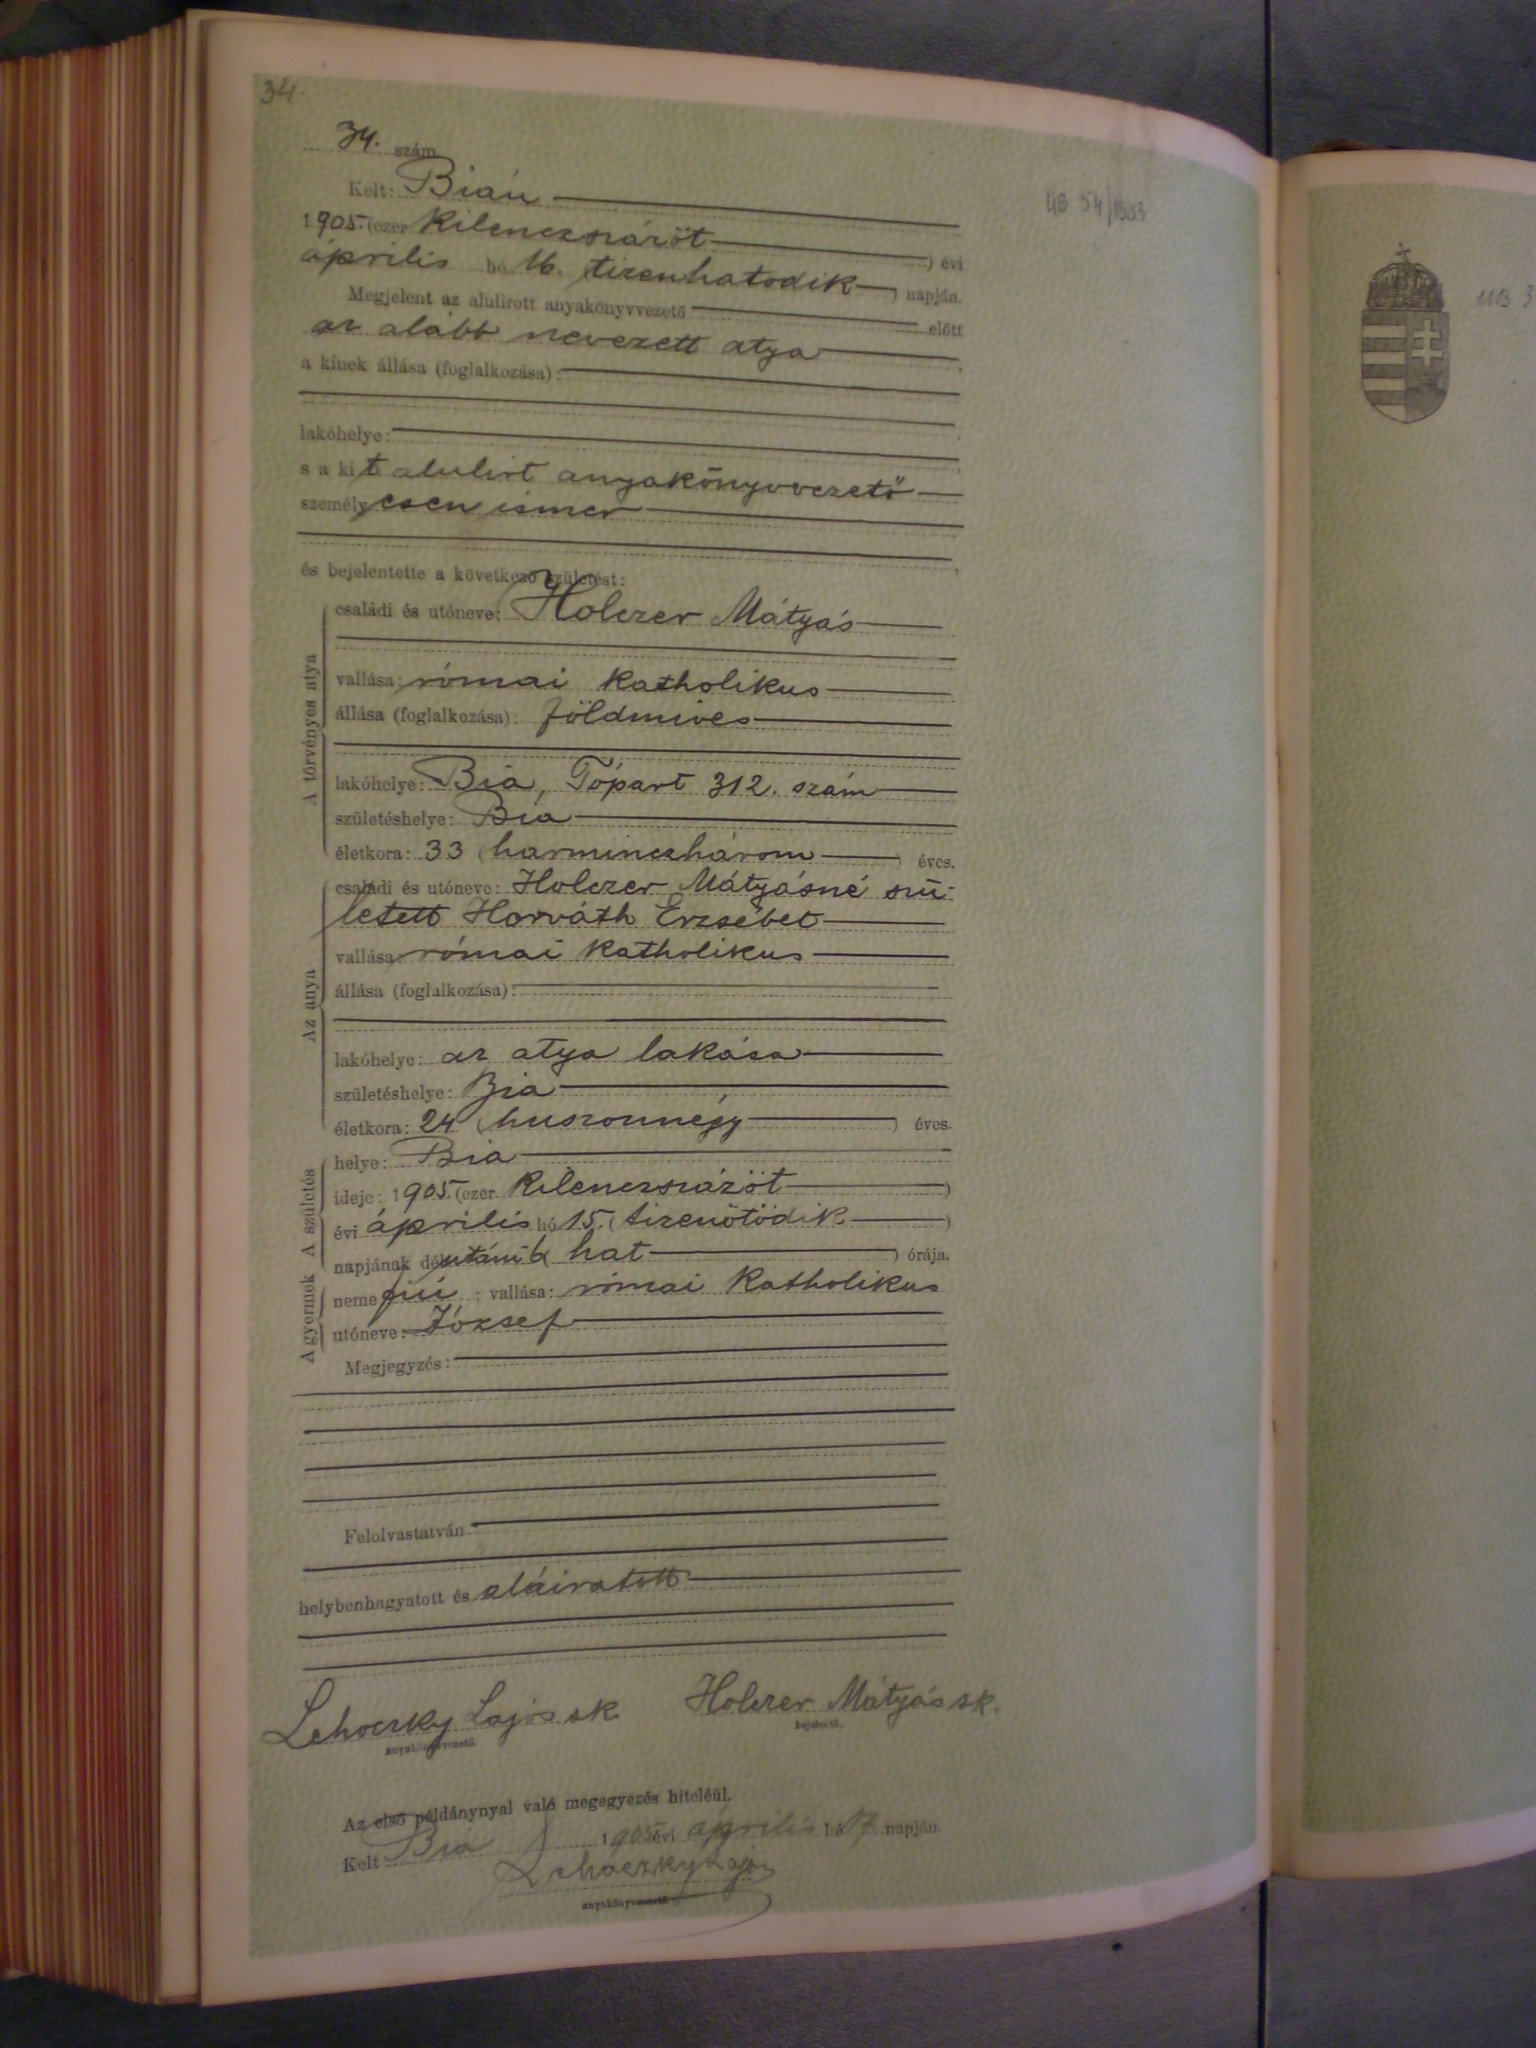 34.
34. szám
Kelt: Bián
1905. (ezer kilenczszázöt ) évi
április hó 16. tizenhatodik ) napján.
Megjelent az alulirott anyakönyvvezető előtt
az alább nevezett atya ,
a kinek állása (foglalkozása):
lakóhelye: ,
s a kit alulirt anyakönyvvezető
személyesen ismer
,
és bejelentette a következő születést:
A törvényes atya
családi és utóneve: Holczer Mátyás
vallása: római katholikus
állása (foglalkozása): földmives
lakóhelye: Bia, Tópart 312. szám
születéshelye: Bia
életkora: 33 (harminczhárom ) éves.
Az anya
családi és utóneve: Holczer Mátyásné szü-
letett Horváth Erzsébet
vallása: római katholikus
állása (foglalkozása):
lakóhelye: az atya lakása
születéshelye: Bia
életkora: 24 (huszonnégy ) éves.
A születés
helye: Bia
ideje: 1905. (ezer kilenczszázöt )
évi április hó 15. (tizenötödik )
napjának délutáni 6 ( hat ) órája.
A gyermek
neme fiú ; vallása: római katholikus
utóneve: József
Megjegyzés:
Felolvastatván
helybenhagyatott és aláiratott
Lehoczky Lajos sk Holczer Mátyás sk.
anyakönyvvezető. bejelentő.
Az első példánynyal való megegyezés hiteléül.
Kelt Bia 1905 évi április hó 17 napján
Lehoczky Lajos
anyakönyvvezető.